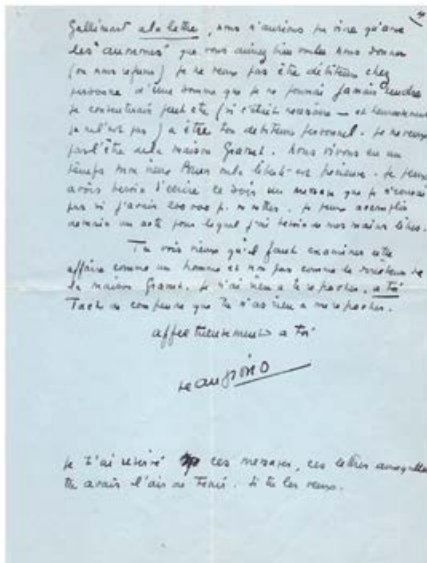 4
Gallimard à la lettre, nous n'aurions pu vivre qu'avec
les "aumônes" que vous auriez bien voulu nous donner
(ou nous refuser) je ne veux pas être débiteur chez
personne d'une somme que je ne pourrai jamais rendre
je consentirais peut être (si c'était nécessaire – et heureusement
je ne l'est pas) à être ton débiteur personnel. je ne veux
pas l'être de la maison Grasset. Nous vivons en un
temps mon vieux où la liberté est précieuse. je peux
avoir besoin d'écrire ce soir un message que je n'écrirais
pas si j'avais 200 000 f. . je peux accomplir
demain un acte pour lequel j'ai besoin de mes mains libres.
Tu vois vieux qu'il faut examiner cette
affaire comme un homme et non pas comme le directeur de
la maison Grasset. je n'ai rien à te reprocher, à toi
Tache de comprendre que tu n'as rien à me reprocher.
affectueusement à toi
jean giono
je t'ai réservé ces messages, ces lettres auxquelles
tu avais l'air de tenir. Si tu les veux.